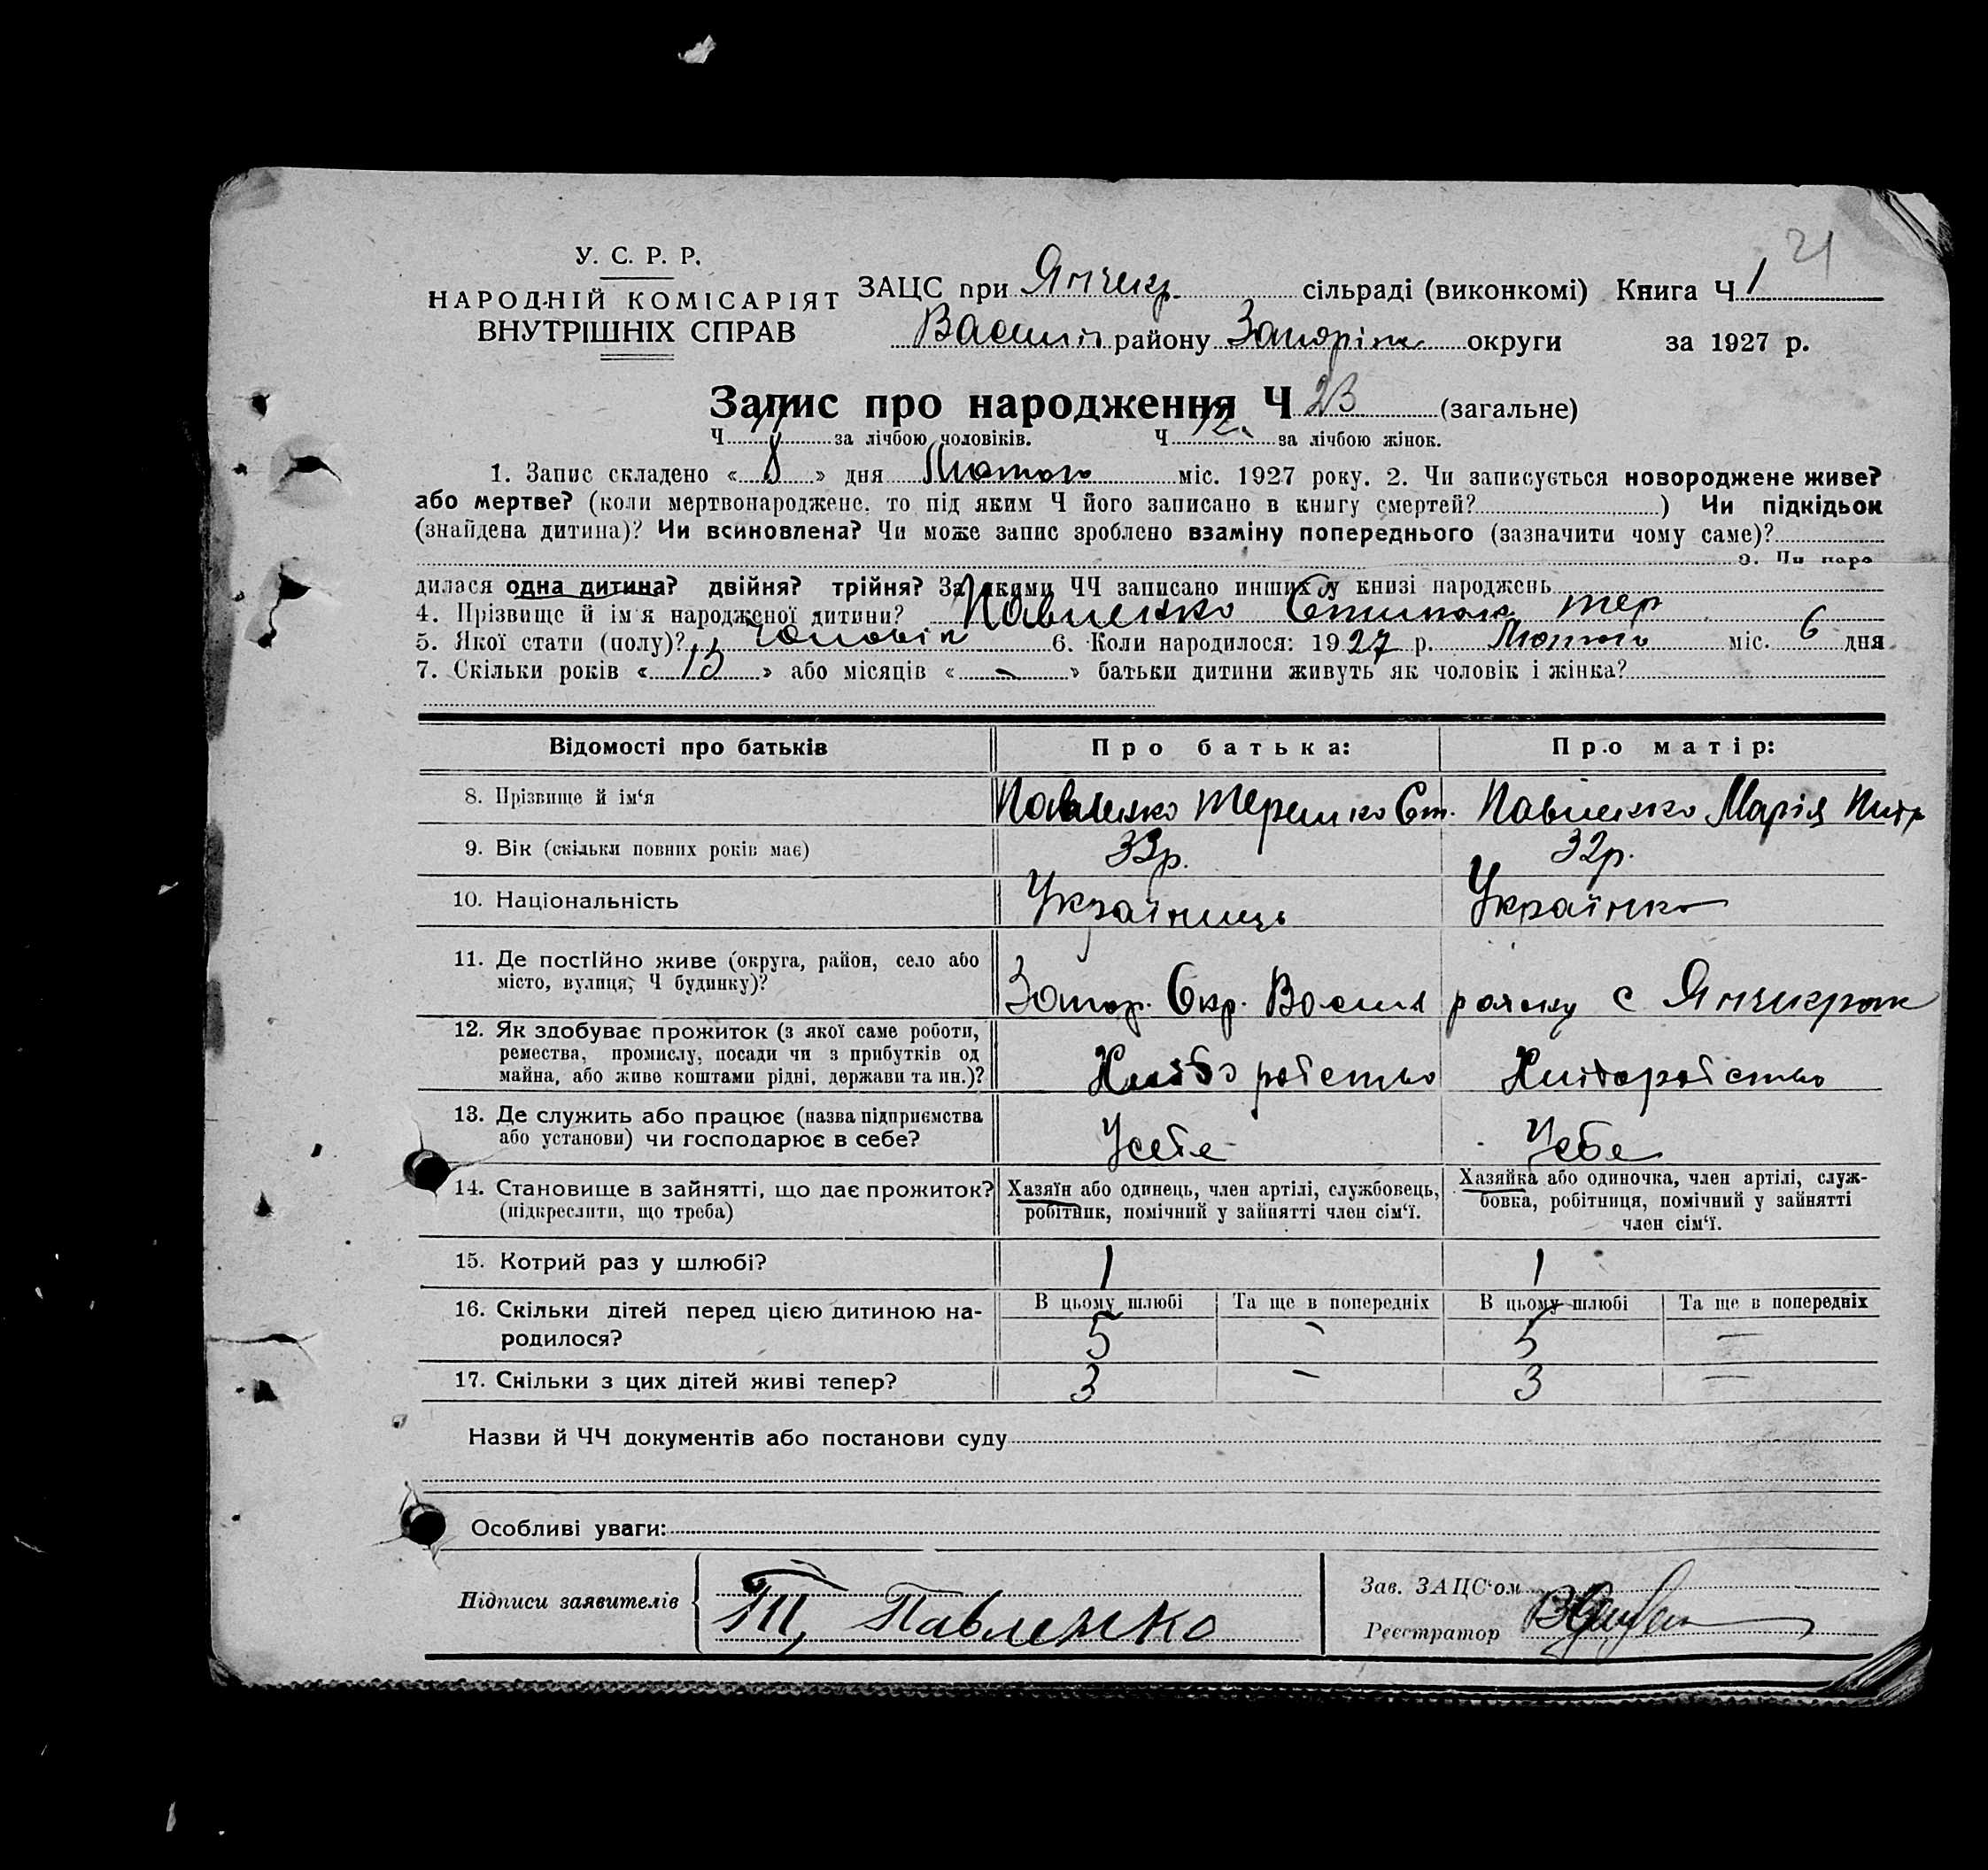 21
У. С. Р. Р.
НАРОДНІЙ КОМІСАРІЯТ
ВНУТРІШНІХ СПРАВ
ЗАЦС при Янчекр. сільраді (виконкомі) Книга Ч 1
Васил району Запоріж округи за 1927 р.
Запис про народження Ч 23 (загальне)
Ч 11 за лічбою чоловіків. Ч 12. за лічбою жінок.
1. Запис складено « 8 » дня Лютого міс. 1927 року. 2. Чи записується новороджене живе?
або мертве? (коли мертвонароджене, то під яким Ч його записано в книгу смертей? ) Чи підкідьок
(знайдена дитина)? Чи всиновлена? Чи може запис зроблено взаміну попереднього (зазначити чому саме)?
3. Чи наро
дилася одна дитина? двійня? трійня? За якими ЧЧ записано инших у книзі народжень
4. Прізвище й ім'я народженої дитини? Павленко Степан Тер
5. Якої стати (полу)? Чоловік 6. Коли народилося: 1927 р. Лютого міс. 6 дня
7. Скільки років « 13 » або місяців « – » батьки дитини живуть як чоловік і жінка?
Відомості про батьків Про батька: Про матір:
8. Прізвище й ім'я Павленко Терешко Ст. Павленко Марія Питр
9. Вік (скільки повних років має) 33р. 32р.
10. Національність Українець Українка
11. Де постійно живе (округа, район, село або
місто, вулиця, Ч будинку)? Запор. Окр. Васил району с Янчикрак
12. Як здобуває прожиток (з якої саме роботи,
ремества, промислу, посади чи з прибутків од
майна, або живе коштами рідні, держави та ин.)? Хліборобство Хліборобство
13. Де служить або працює (назва підприємства
або установи) чи господарює в себе? Усебе Усебе
14. Становище в зайнятті, що дає прожиток?
(підкреслити, що треба)
Хазяїн або одинець, член артілі, службовець,
робітник, помічний у зайнятті член сім'ї.
Хазяйка або одиночка, член артілі, служ-
бовка, робітниця, помічний у зайнятті
член сім'ї.
15. Котрий раз у шлюбі? 1 1
16. Скільки дітей перед цією дитиною на-
родилося?
В цьому шлюбі Та ще в попередніх В цьому шлюбі Та ще в попередніх
5 – 5 –
17. Скільки з цих дітей живі тепер? 3 – 3 –
Назви й ЧЧ документів або постанови суду
Особливі уваги:
Підписи заявителів Т, Павленко
Зав. ЗАЦС'ом
Реєстратор